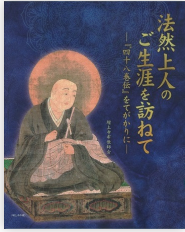 法然上人の
ご生涯を訪ねて
―『四十八巻伝』をてがかりに―